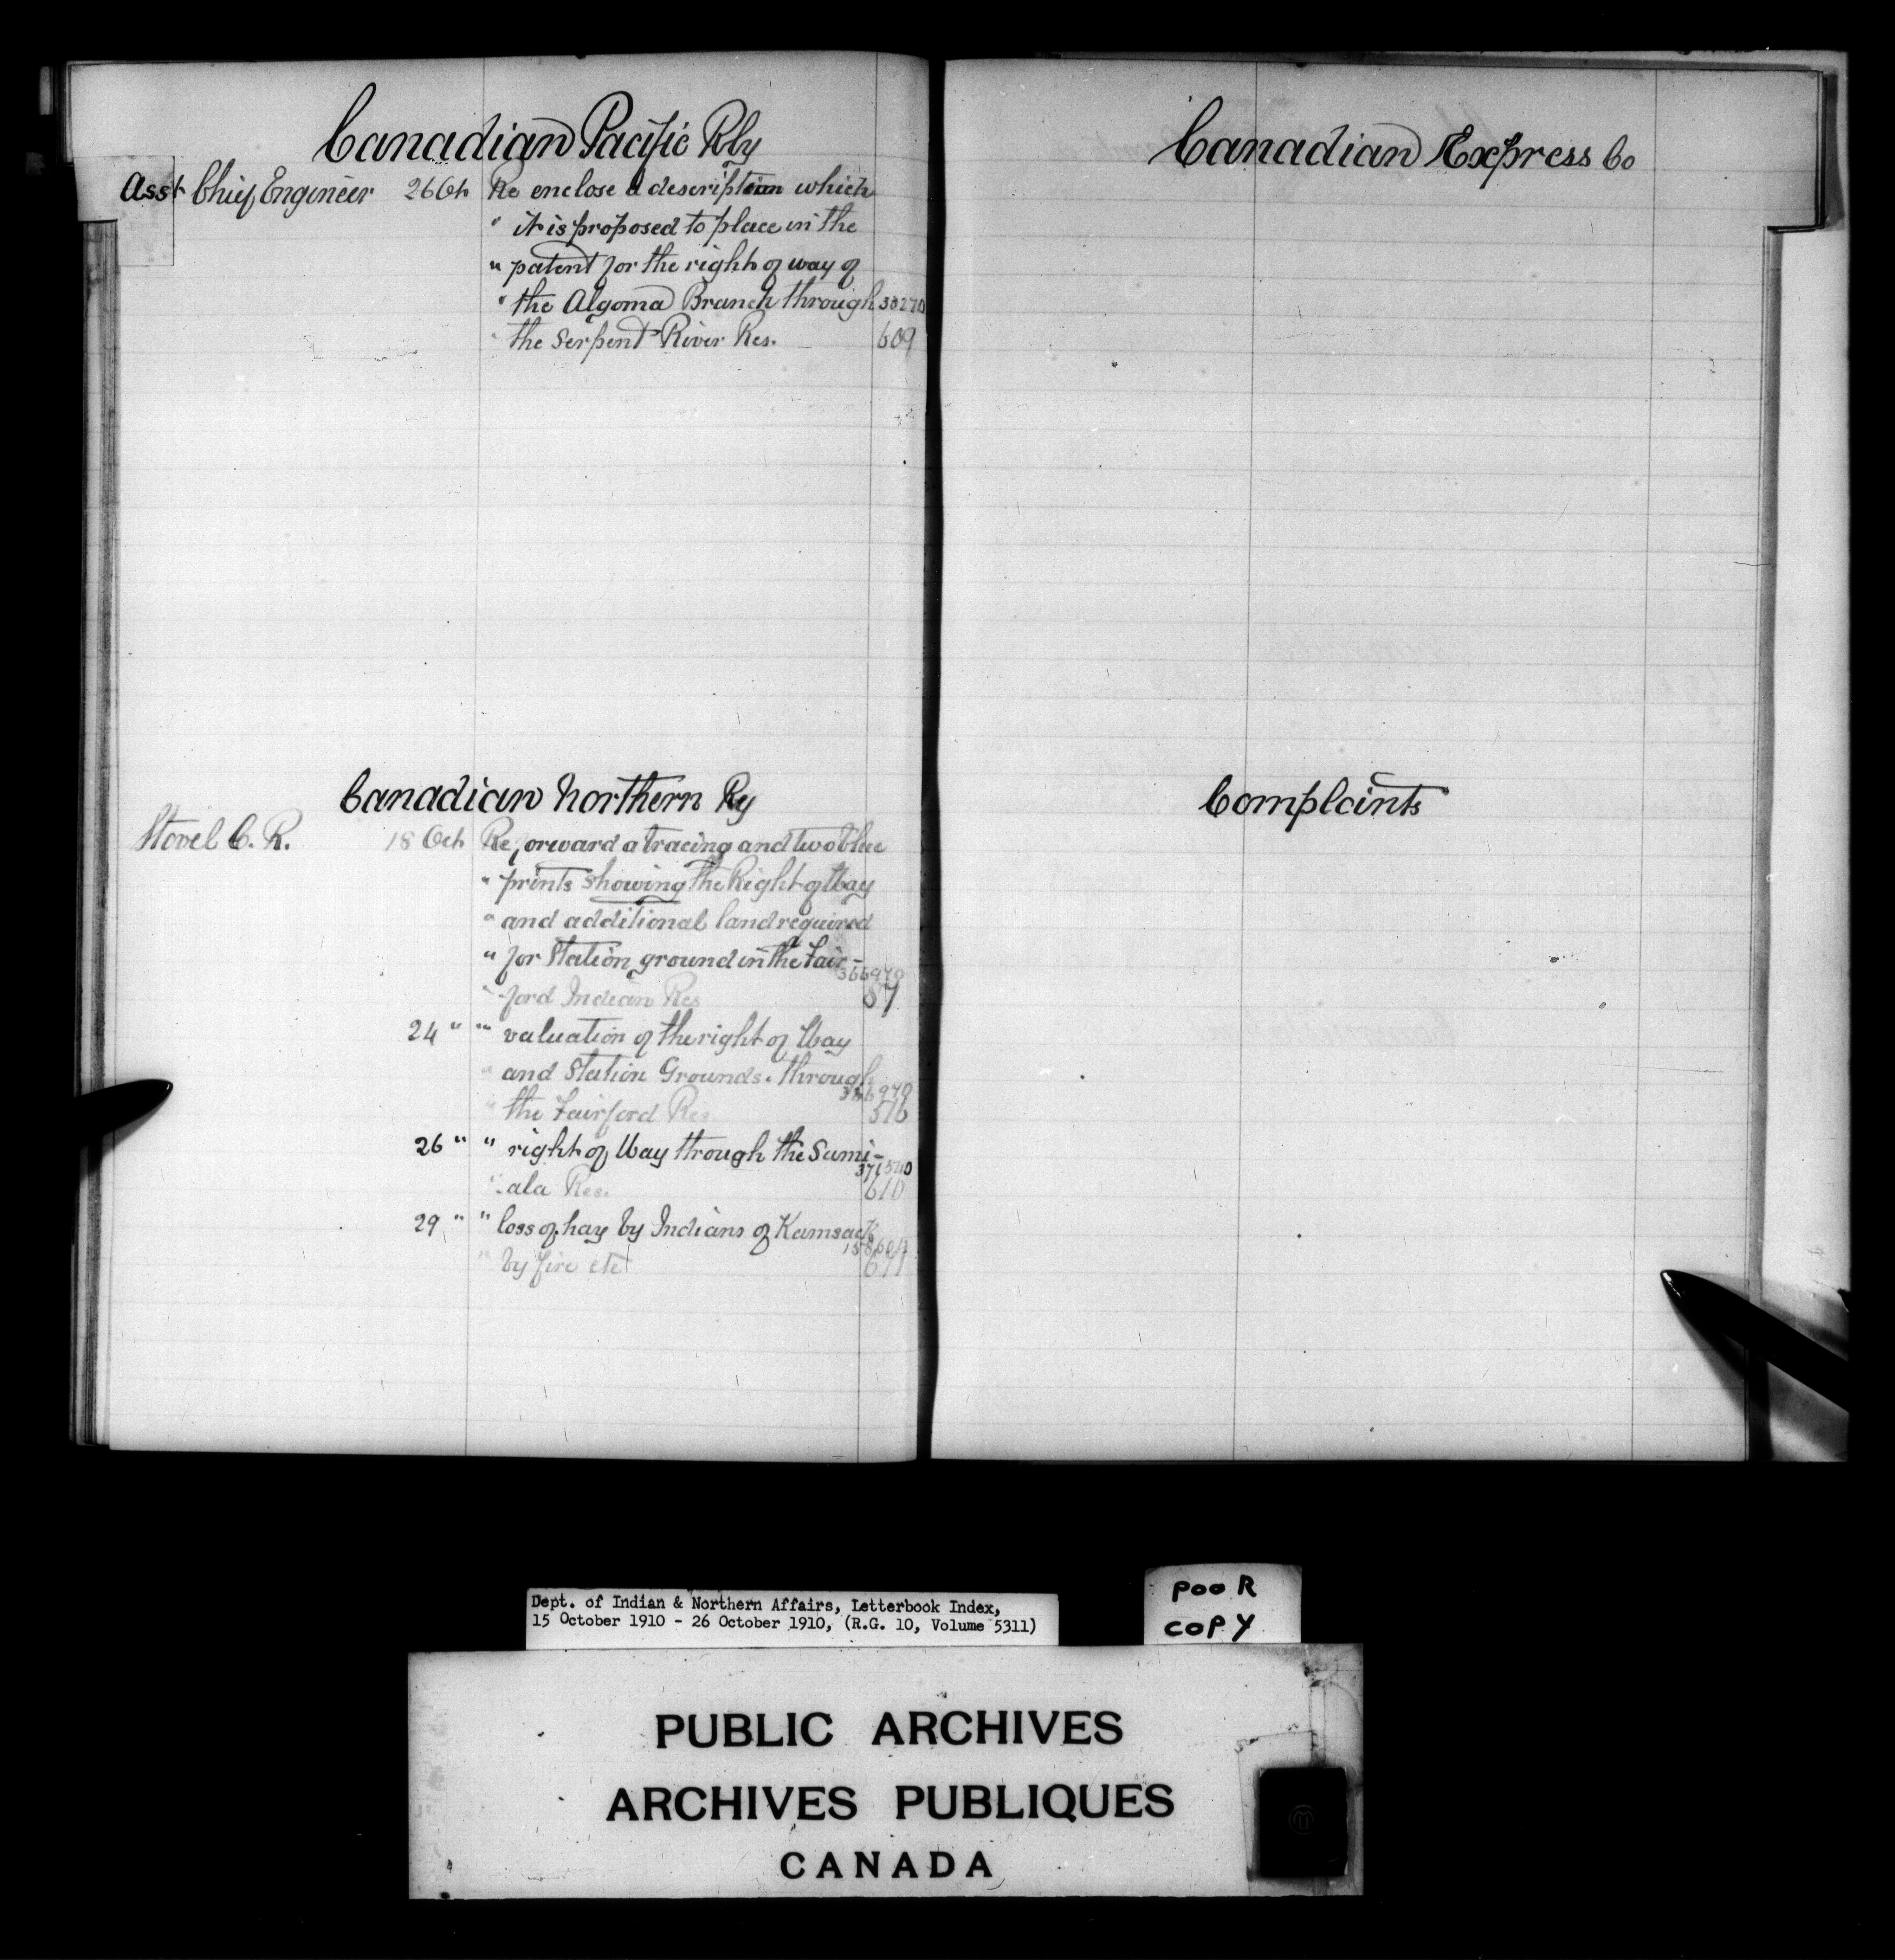 Canadian Pacific Rly
Asst Chief Engineer 26 Oct Re enclose a description which
" it is proposed to place in the
" patent for the right of way of
" the Algoma Branch through
" the Serpent River Res. 609
Canadian Northern Ry
Stovel C. R. 18 Oct Re forward a tracing and two blue
" prints showing the Right of Way
" and additional land required
" for Station ground in the Fair-
366970
" -ford Indian Res 87
24 " " valuation of the right of Way
" and Station Grounds. through
366970
" the Fairford Res. 516
26 " " right of Way through the Sumi-
" -ala Res. 610
29 " " loss of hay by Indians of Kamsack
" by fire etc 671
Canadian Express Co
Complaints
Dept. of Indian & Northern Affairs, Letterbook Index,
15 October 1910 - 26 October 1910, (R.G. 10, Volume 5311)
POOR
COPY
PUBLIC ARCHIVES
ARCHIVES PUBLIQUES
CANADA